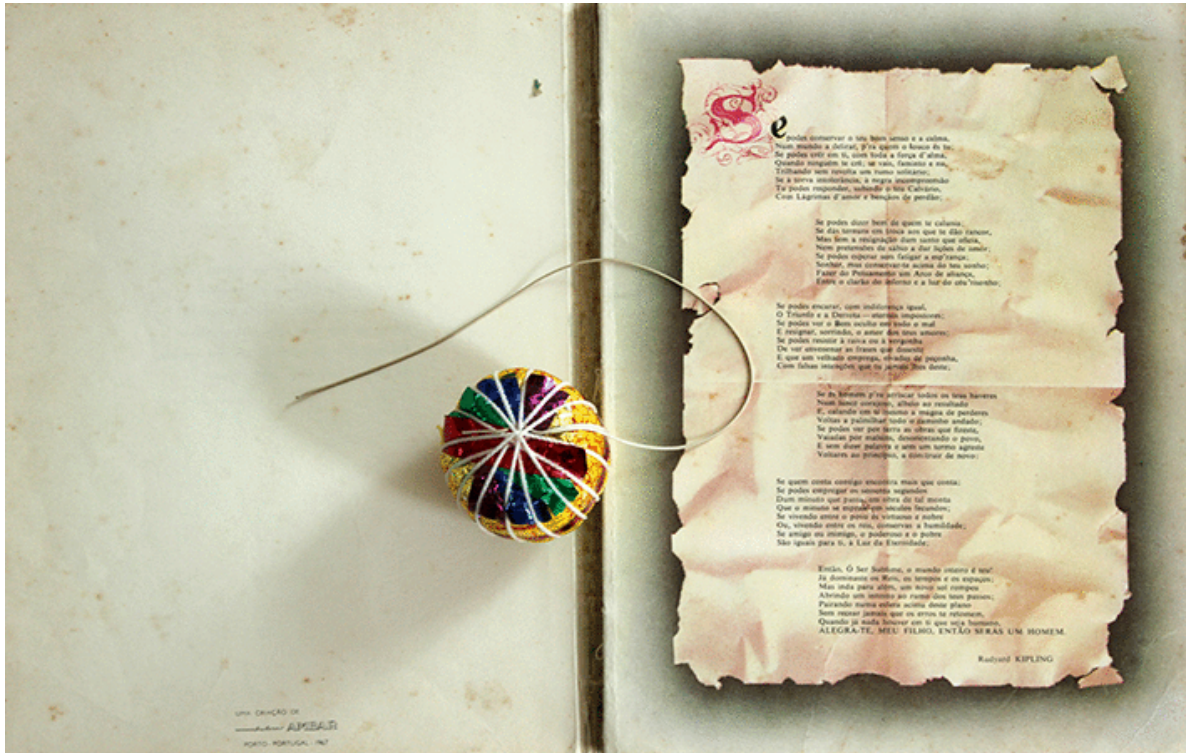 UMA CRIAÇÃO DE
PORTO - PORTUGAL - 1967
Se podes conservar o teu bom senso e a calma,
Num mundo a delirar, p'ra quem o louco és tu;
Se podes crêr em ti, com toda a força d'alma,
Quando ninguém te crê; se vais, faminto e nu,
Trilhando sem revolta um rumo solitário;
Se à torva intolerância, à negra incompreensão
Tu podes responder, subindo o teu Calvário,
Com Lágrimas d'amor e bençãos de perdão;
Se podes dizer bem de quem te calunia;
Se dás ternura em troca aos que te dão rancor,
Mas sem a resignação dum santo que oficia,
Nem pretensões de sábio a dar lições de amor;
Se podes esperar sem fatigar a esp'rança;
Sonhar, mas conservar-te acima do teu sonho;
Fazer do Pensamento um Arco de aliança,
Entre o clarão do inferno e a luz do céu risonho;
Se podes encarar, com indiferença igual,
O Triunfo e a Derrota — eternos impostores;
Se podes ver o Bem oculto em todo o mal
E resignar, sorrindo, o amor dos teus amores;
Se podes resistir à raiva ou à vergonha
De ver envenenar as frases que disseste
E que um velhaco emprega, eivadas de peçonha,
Com falsas intenções que tu jamais lhes deste;
Se és homem p'ra arriscar todos os teus haveres
Num lance corajoso, alheio ao resultado
E, calando em ti mesmo a mágoa de perderes
Voltas a palmilhar todo o caminho andado;
Se podes ver por terra as obras que fizeste,
Vaiadas por malsins, desorientando o povo,
E sem dizer palavra e sem um termo agreste
Voltares ao princípio, a construir de novo;
Se quem conta contigo encontra mais que conta;
Se podes empregar os sessenta segundos
Dum minuto que passa, em obra de tal monta
Que o minuto se espraie em séculos fecundos;
Se vivendo entre o povo és virtuoso e nobre
Ou, vivendo entre os reis, conservas a humildade;
Se amigo ou inimigo, o poderoso e o pobre
São iguais para ti, à Luz da Eternidade;
Então, Ó Ser Sublime, o mundo inteiro é teu!
Já dominaste os Reis, os tempos e os espaços;
Mas inda para além, um novo sol rompeu
Abrindo um infinito ao rumo dos teus passos;
Pairando numa esfera acima deste plano
Sem recear jamais que os erros te retomem,
Quando já nada houver em ti que seja humano,
ALEGRA-TE, MEU FILHO, ENTÃO SERÁS UM HOMEM.
Rudyard KIPLING